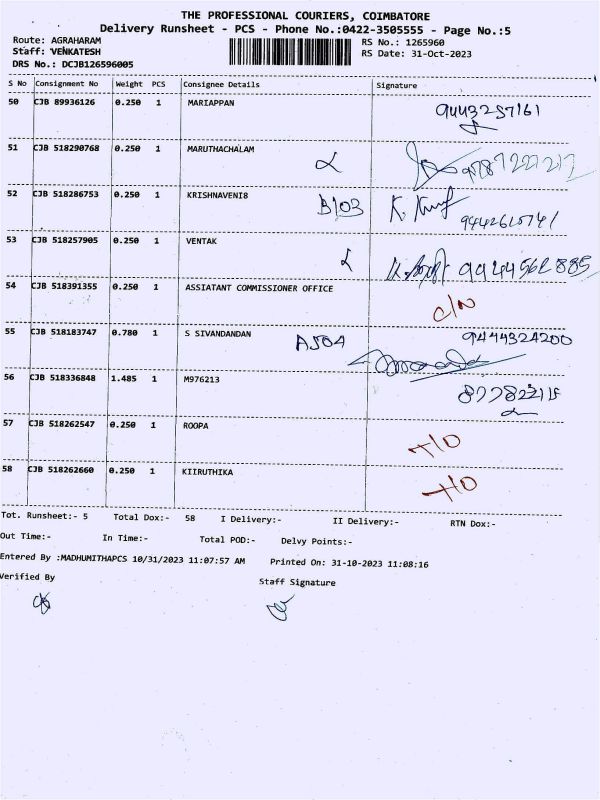 THE PROFESSIONAL COURIERS, COIMBATORE
Delivery Runsheet - PCS - Phone No.:0422-3505555 - Page No.:5
Route: AGRAHARAM RS No.: 1265960
Staff: VENKATESH RS Date: 31-Oct-2023
DRS No.: DCJB126596005
S No Consignment No Weight PCS Consignee Details Signature
50 CJB 89936126 0.250 1 MARIAPPAN 9443257161
51 CJB 518290768 0.250 1 MARUTHACHALAM
52 CJB 518286753 0.250 1 KRISHNAVENI8 B103
53 CJB 518257905 0.250 1 VENTAK
54 CJB 518391355 0.250 1 ASSIATANT COMMISSIONER OFFICE C/N
55 CJB 518183747 0.780 1 S SIVANDANDAN A504 9444324200
56 CJB 518336848 1.485 1 M976213
57 CJB 518262547 0.250 1 ROOPA
58 CJB 518262660 0.250 1 KIIRUTHIKA
Tot. Runsheet:- 5 Total Dox:- 58 I Delivery:- II Delivery:- RTN Dox:-
Out Time:- In Time:- Total POD:- Delvy Points:-
Entered By :MADHUMITHAPCS 10/31/2023 11:07:57 AM Printed On: 31-10-2023 11:08:16
Verified By Staff Signature